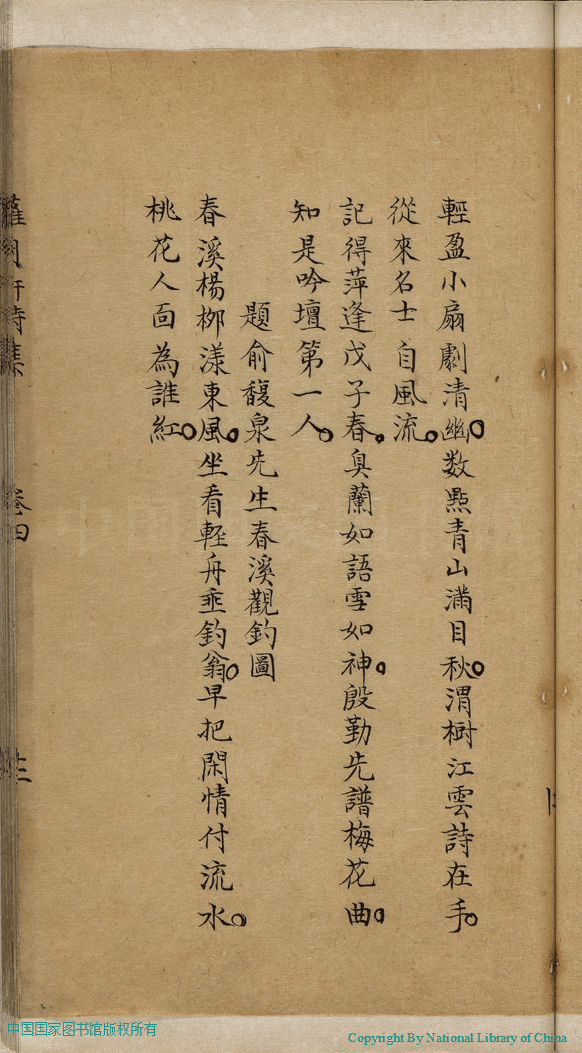 輕盈小扇劇清幽。数㸃青山滿目秋。渭樹江雲詩在手。
從來名士自風流。
記得萍逢戊子春。臭蘭如語雪如神。殷勤先譜梅花曲。
知是吟壇第一人。
題俞馥泉先生春溪觀釣圖
春溪楊栁漾東風。坐看輕舟垂釣翁。早把閑情付流水。
桃花人面為誰紅。
詩集 卷四
中国国家图书馆版权所有
Copyright By National Library of China